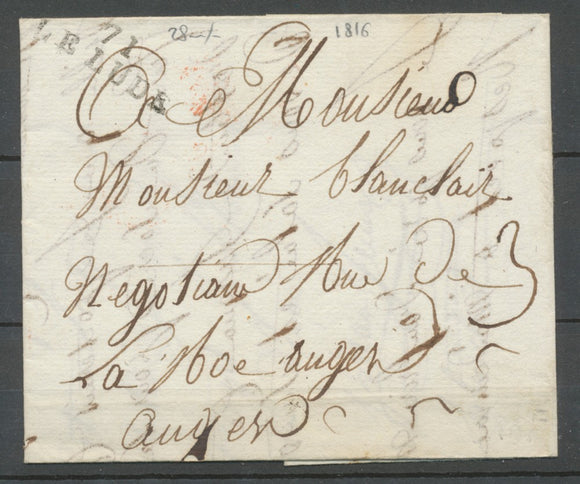 71
LE LUDE
1816
A Monsieur
Monsieur blanclair
Negotiant Rue De
La Roe anger
anger
3